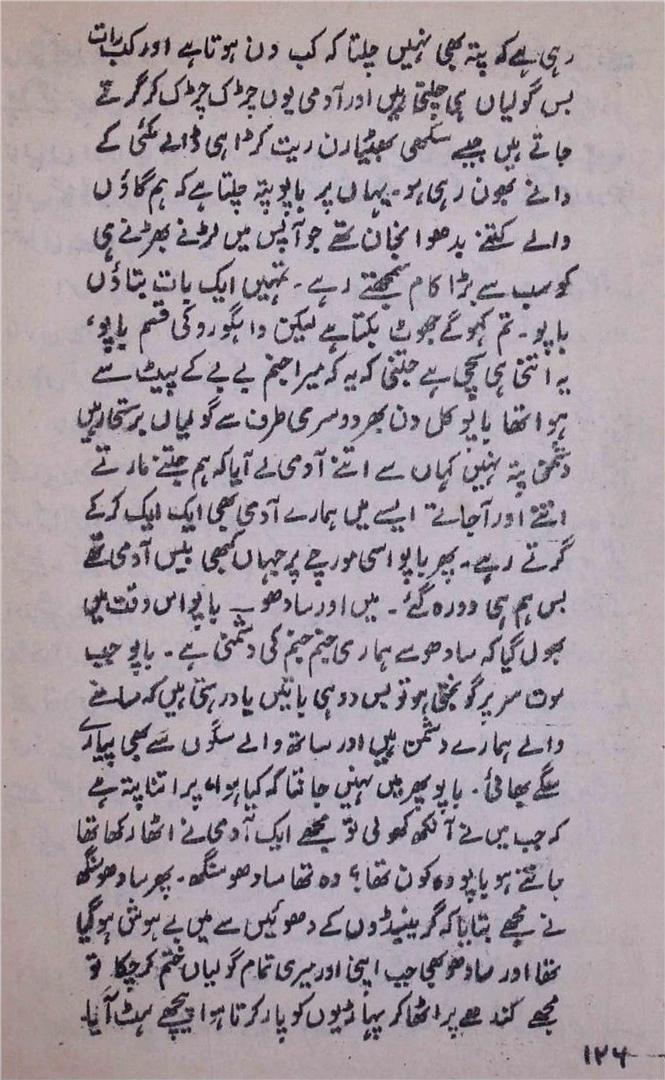 رہی ہے کہ پتہ بھی نہیں چلتا کہ کب دن ہوتا ہے اور کب رات
بس گولیاں ہی چلتی ہیں اور آدمی یوں چڑک چڑک کر گرتے
جاتے ہیں جیسے سکھی بھٹیارن ریت کڑاہی ڈالے مکئی کے
دانے بھون رہی ہو۔ یہاں پر باپو پتہ چلتا ہے کہ ہم گاؤں
والے کتنے بدھو انجان تھے جو آپس میں لڑنے بھڑنے ہی
کو سب سے بڑا کام سمجھتے رہے۔ تمہیں ایک بات بتاؤں
باپو۔ تم کہو گے جھوٹ بکتا ہے لیکن واہگورو کی قسم باپو،
یہ اتنی ہی سچی ہے جتنی کہ یہ کہ میرا جنم بے بے کے پیٹ سے
ہوا تھا باپو کل دن بھر دوسری طرف سے گولیاں برستی رہیں
دشمن پتہ نہیں کہاں سے اتنے آدمی لے آیا کہ ہم جتنے مارتے
اتنے اور آ جاتے ایسے میں ہمارے آدمی بھی ایک ایک کر کے
گرتے رہے۔ پھر باپو اسی مورچے پر جہاں کبھی بیس آدمی تھے
بس ہم ہی دو رہ گئے۔ میں اور سادھو۔ باپو اس وقت میں
بھول گیا کہ سادھو سے ہماری جنم جنم کی دشمنی ہے۔ باپو جب
موت سر پر گونجتی ہو تو بس دو ہی باتیں یاد رہتی ہیں کہ سامنے
والے ہمارے دشمن ہیں اور ساتھ والے سگوں سے بھی پیارے
سگے بھائی۔ باپو پھر میں نہیں جانتا کہ کیا ہوا، پر اتنا پتہ ہے
کہ جب میں نے آنکھ کھولی تو مجھے ایک آدمی نے اٹھا رکھا تھا
جانتے ہو باپو وہ کون تھا؟ وہ تھا سادھو سنگھ۔ پھر سادھو سنگھ
نے مجھے بتایا کہ گرینیڈوں کے دھوئیں سے میں بے ہوش ہو گیا
تھا اور سادھو بھی جب اپنی اور میری تمام گولیاں ختم کر چکا تو
مجھے کندھے پر اٹھا کر پہاڑیوں کو پار کرتا ہوا پیچھے ہٹ آیا۔
۱۲۶